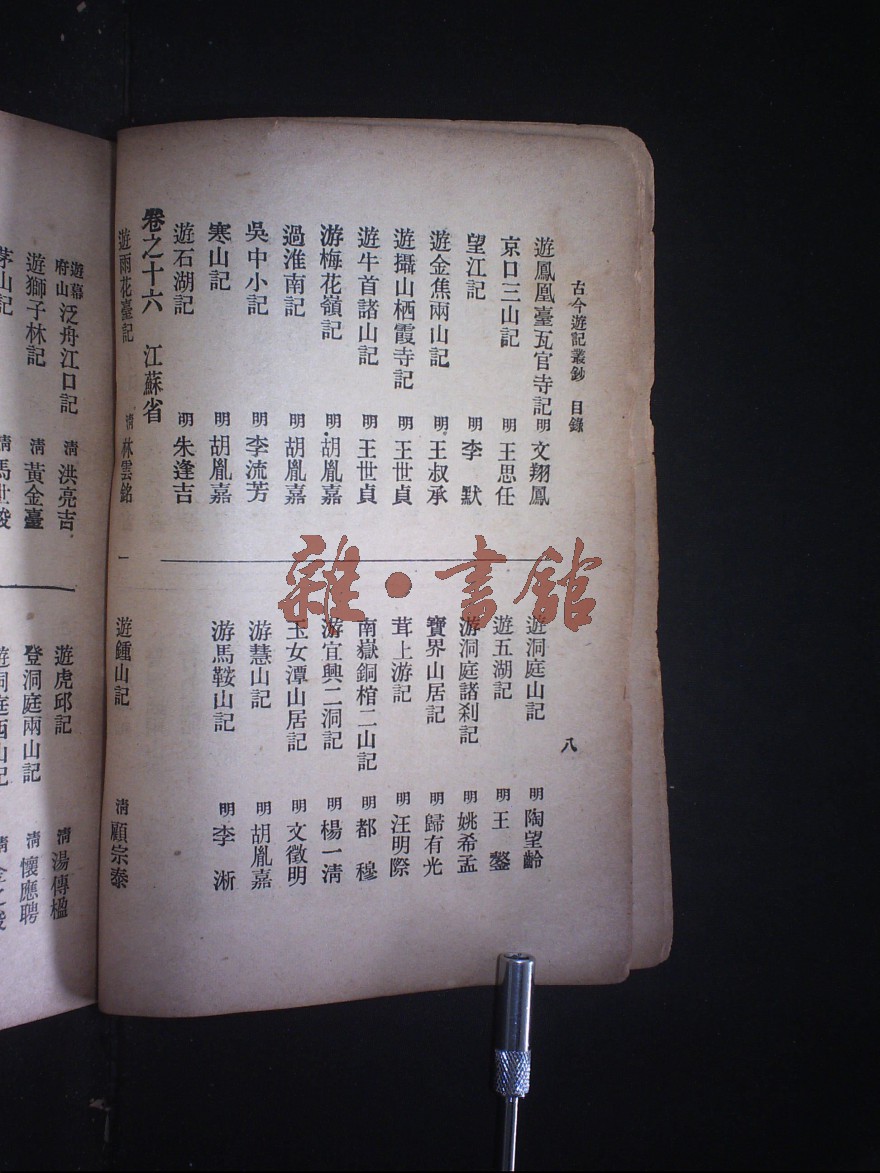 古今遊記叢鈔 目錄
八
遊鳳凰臺瓦官寺記 明 文翔鳳
京口三山記 明 王思任
望江記 明 李 默
遊金焦兩山記 明 王叔承
遊攝山栖霞寺記 明 王世貞
遊牛首諸山記 明 王世貞
游梅花嶺記 明 胡胤嘉
過淮南記 明 胡胤嘉
吳中小記 明 李流芳
寒山記 明 胡胤嘉
遊石湖記 明 朱逢吉
遊洞庭山記 明 陶望齡
遊五湖記 明 王 鏊
游洞庭諸剎記 明 姚希孟
寶界山居記 明 歸有光
茸上游記 明 汪明際
南嶽銅棺二山記 明 都 穆
游宜興二洞記 明 楊一清
玉女潭山居記 明 文徵明
游慧山記 明 胡胤嘉
游馬鞍山記 明 李 淅
卷之十六 江蘇省
遊雨花臺記 清 林雲銘
一
遊鍾山記 清 顧宗泰
遊幕府山泛舟江口記 清 洪亮吉
遊獅子林記 清 黃金臺
茅山記 清
遊虎邱記 清 湯傳楹
登洞庭兩山記 清 懷應聘
遊洞庭西山記 清
雜·書館